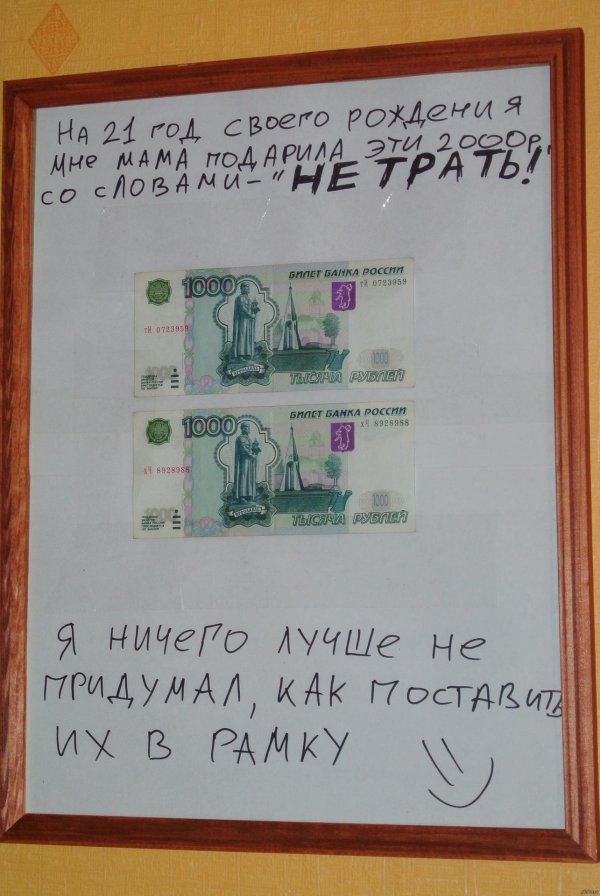 НА 21 ГОД СВОЕГО РОЖДЕНИЯ
МНЕ МАМА ПОДАРИЛА ЭТИ 2000р.
СО СЛОВАМИ – "НЕ ТРАТЬ!"
БИЛЕТ БАНКА РОССИИ
1000
тЙ 0723959
тЙ 0723959
1000
1000
ТЫСЯЧА РУБЛЕЙ
БИЛЕТ БАНКА РОССИИ
1000
хЧ 8928988
хЧ 8928988
1000
1000
ТЫСЯЧА РУБЛЕЙ
Я НИЧЕГО ЛУЧШЕ НЕ
ПРИДУМАЛ, КАК ПОСТАВИТЬ
ИХ В РАМКУ